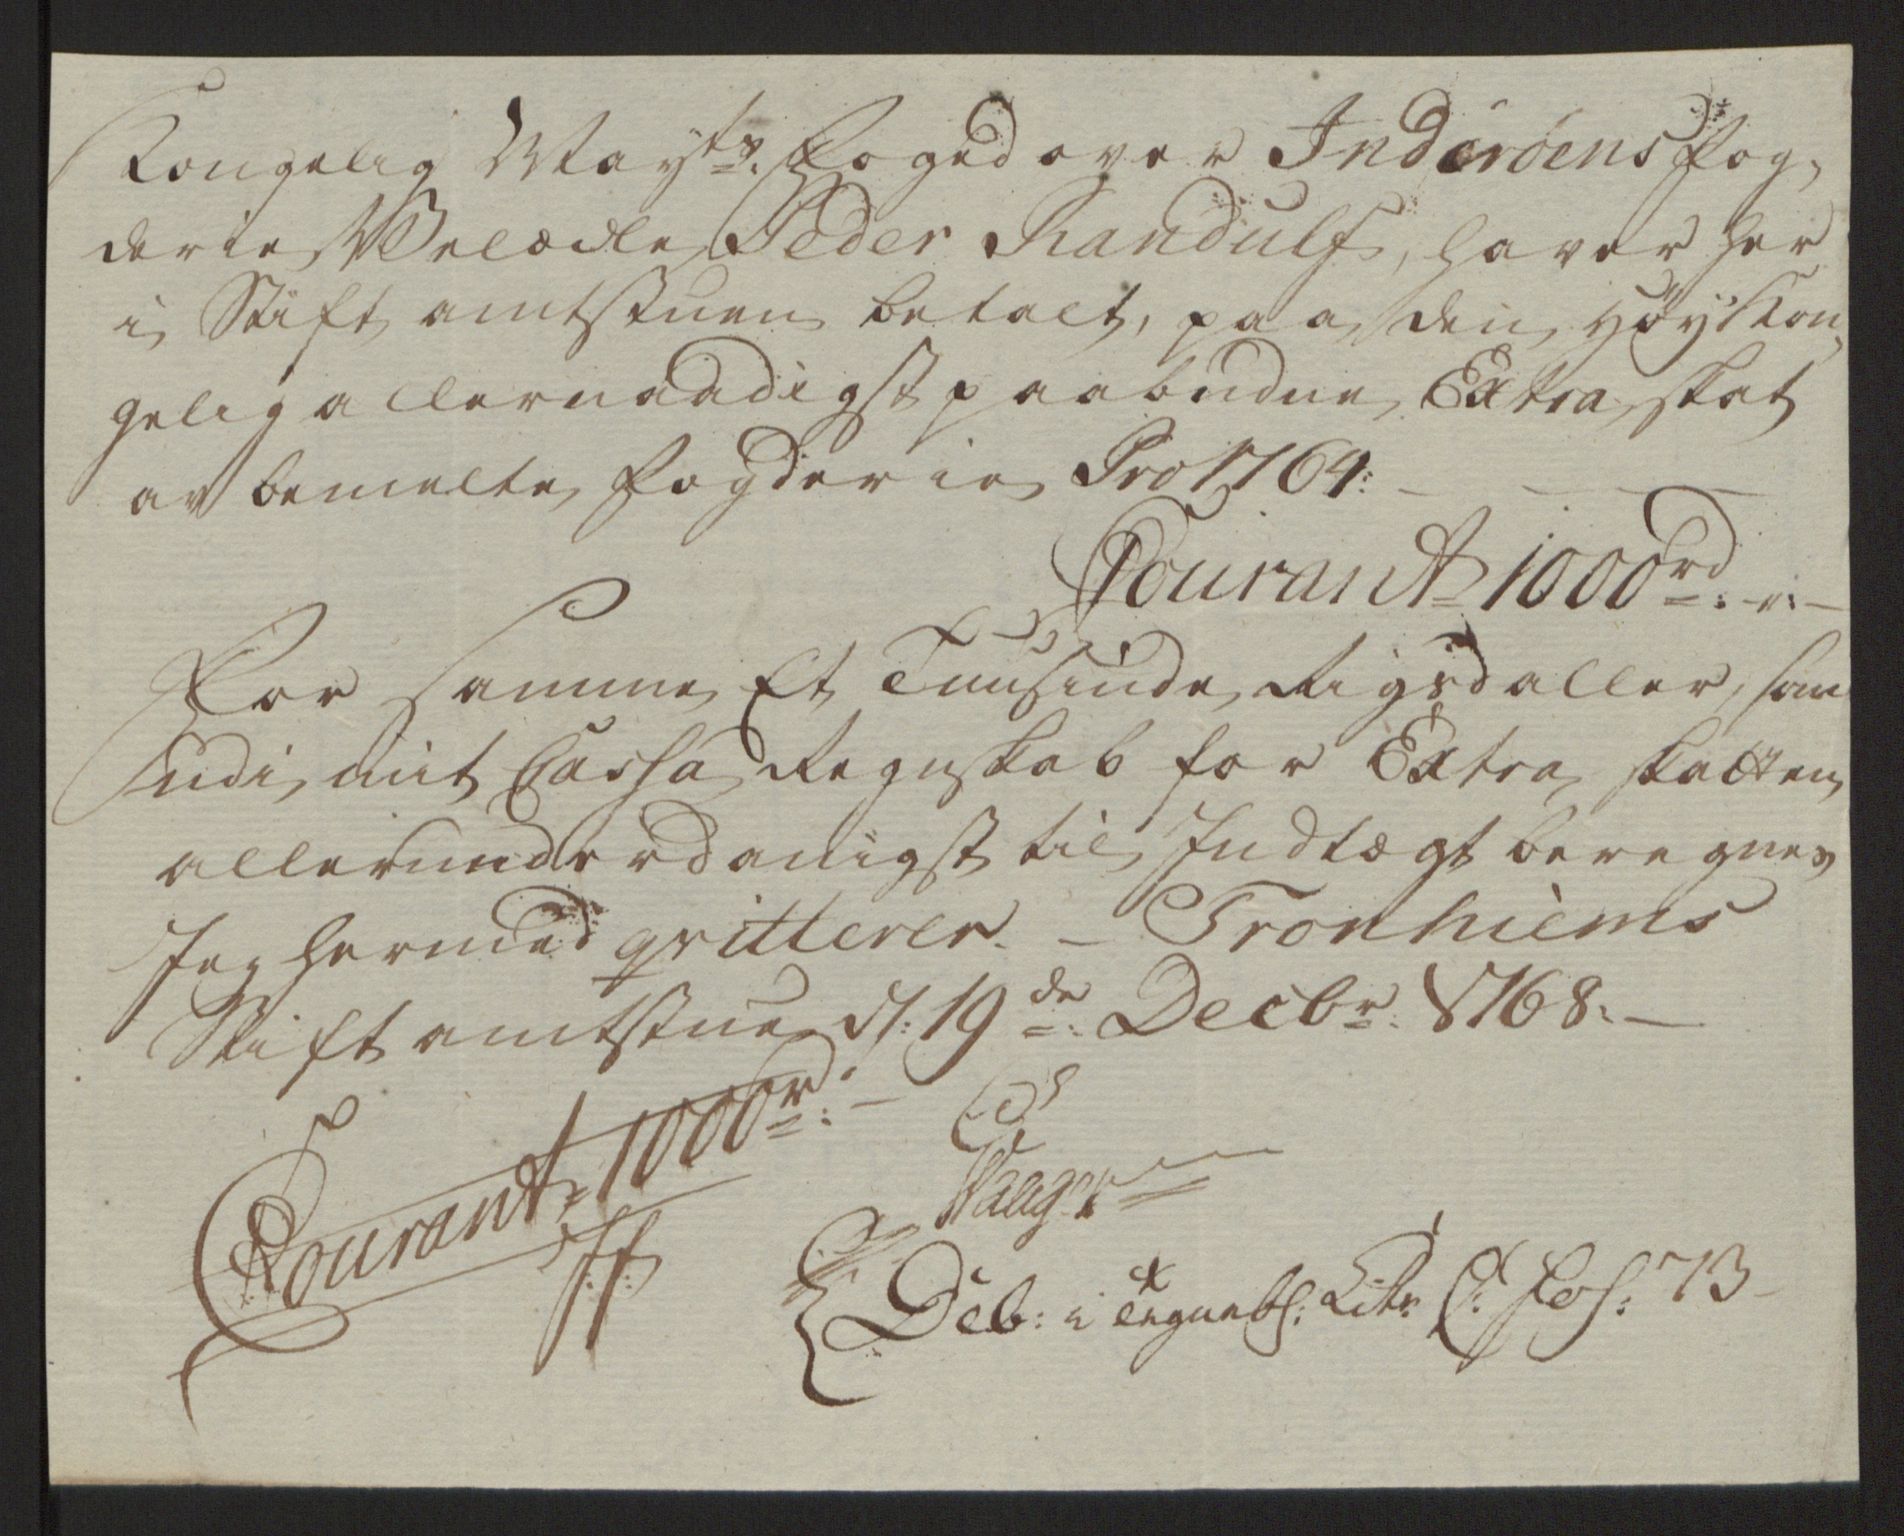 Kongelig Mayts. Foged over Inderöens Fog,
derie, Velædle Peder Randulf, haver her
i Stift amtstuen betalt, paa den Høy Kon,
gelig allernaadigst paabudne Extra skat
av bemelte Fogderie Pro 1764: —
Courant 1000rd:
For samme Et Tuusinde Rigsdaller, som
udi mit Cassa Regnskab for Extra skatten
allerunderdanigst til Indtægt beregnes
Jeg hermed qvitterer. — Tronhiems
Stift amtstue d: 19de Decbr. 1768. —
Courant 1000r: —
Deb: i Extra Litr C: Fol: 73 —